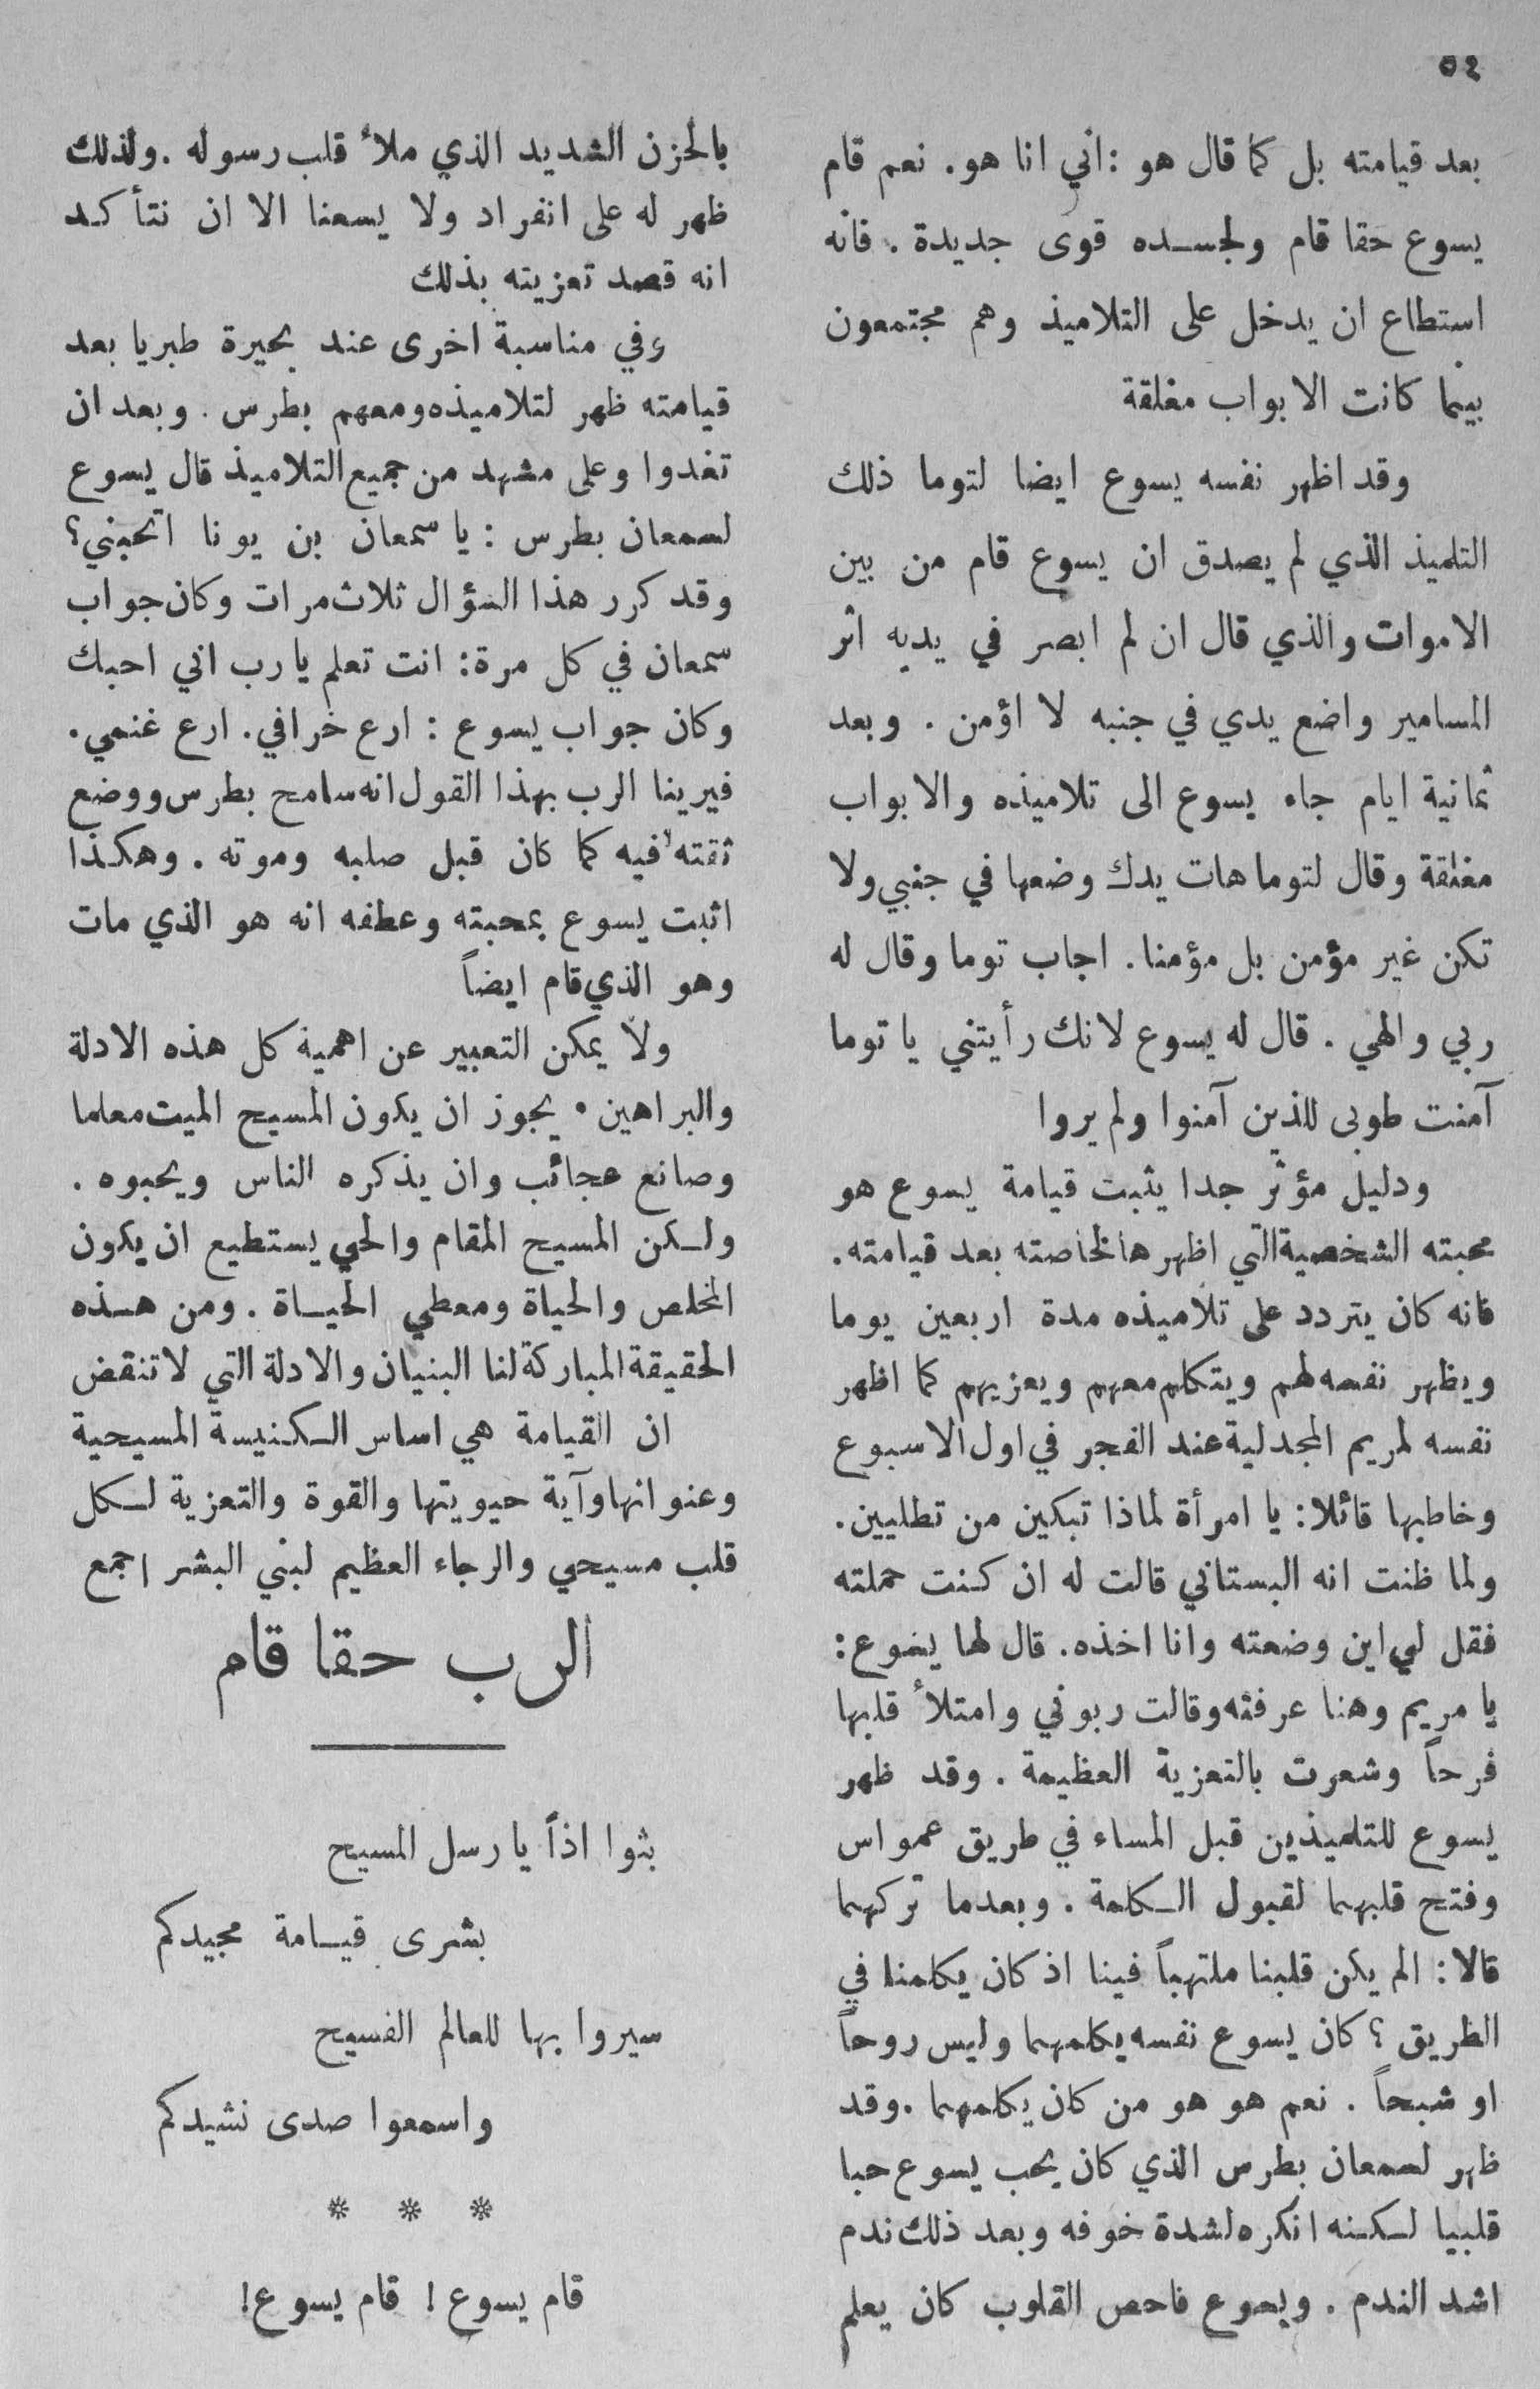 ٥٤
بعد قيامته بل كما قال هو : اني انا هو . نعم قام
يسوع حقا قام ولجسده قوى جديدة . فانه
استطاع ان يدخل على التلاميذ وهم مجتمعون
بينما كانت الابواب مغلقة
وقد اظهر نفسه يسوع ايضا لتوما ذلك
التلميذ الذي لم يصدق ان يسوع قام من بين
الاموات والذي قال ان لم ابصر في يديه اثر
المسامير واضع يدي في جنبه لا اؤمن . وبعد
ثمانية ايام جاء يسوع الى تلاميذه والابواب
مغلقة وقال لتوما هات يدك وضعها في جنبي ولا
تكن غير مؤمن بل مؤمنا . اجاب توما وقال له
ربي والهي . قال له يسوع لانك رأيتني يا توما
آمنت طوبى للذين آمنوا ولم يروا
ودليل مؤثر جدا يثبت قيامة يسوع هو
محبته الشخصية التي اظهرها لخاصته بعد قيامته .
فانه كان يتردد على تلاميذه مدة اربعين يوما
ويظهر نفسه لهم ويتكلم معهم ويعزيهم كما اظهر
نفسه لمريم المجدلية عند الفجر في اول الاسبوع
وخاطبها قائلا : يا امرأة لماذا تبكين من تطلبين .
ولما ظنت انه البستاني قالت له ان كنت حملته
فقل لي اين وضعته وانا اخذه . قال لها يسوع :
يا مريم وهنا عرفته وقالت ربوني وامتلأ قلبها
فرحاً وشعرت بالتعزية العظيمة . وقد ظهر
يسوع للتلميذين قبل المساء في طريق عمواس
وفتح قلبهما لقبول الكلمة . وبعدما تركهما
قالا : الم يكن قلبنا ملتهباً فينا اذ كان يكلمنا في
الطريق ؟ كان يسوع نفسه يكلمهما وليس روحاً
او شبحاً . نعم هو هو من كان يكلمهما . وقد
ظهر لسمعان بطرس الذي كان يحب يسوع حبا
قلبيا لكنه انكره لشدة خوفه وبعد ذلك ندم
اشد الندم . ويسوع فاحص القلوب كان يعلم
بالحزن الشديد الذي ملأ قلب رسوله . ولذلك
ظهر له على انفراد ولا يسعنا الا ان نتأكد
انه قصد تعزيته بذلك
وفي مناسبة اخرى عند بحيرة طبريا بعد
قيامته ظهر لتلاميذه ومعهم بطرس . وبعد ان
تغدوا وعلى مشهد من جميع التلاميذ قال يسوع
لسمعان بطرس : يا سمعان بن يونا اتحبني ؟
وقد كرر هذا السؤال ثلاث مرات وكان جواب
سمعان في كل مرة : انت تعلم يا رب اني احبك
وكان جواب يسوع : ارع خرافي . ارع غنمي .
فيرينا الرب بهذا القول انه سامح بطرس ووضع
ثقته فيه كما كان قبل صلبه وموته . وهكذا
اثبت يسوع بمحبته وعطفه انه هو الذي مات
وهو الذي قام ايضاً
ولا يمكن التعبير عن اهمية كل هذه الادلة
والبراهين . يجوز ان يكون المسيح الميت معلما
وصانع عجائب وان يذكره الناس ويحبوه .
ولكن المسيح المقام والحي يستطيع ان يكون
المخلص والحياة ومعطي الحياة . ومن هذه
الحقيقة المباركة لنا البنيان والادلة التي لا تنقض
ان القيامة هي اساس الكنيسة المسيحية
وعنوانها وآية حيويتها والقوة والتعزية لكل
قلب مسيحي والرجاء العظيم لبني البشر اجمع
الرب حقا قام
بثوا اذاً يا رسل المسيح
بشرى قيامة مجيدكم
سيروا بها للعالم الفسيح
واسمعوا صدى نشيدكم
* * *
قام يسوع ! قام يسوع !